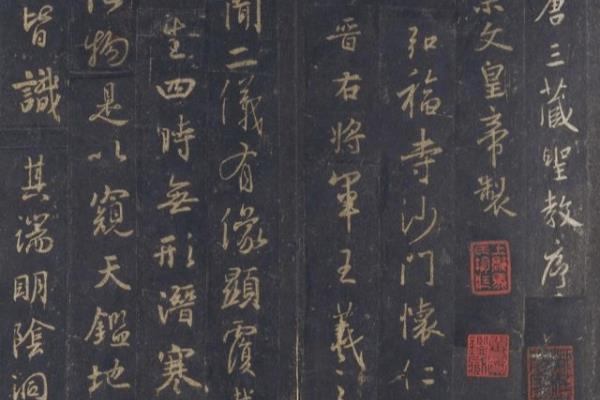 唐三藏聖教序
文皇帝製
弘福寺沙門懷仁
晉右將軍王羲
聞二儀有像顯覆
生四時無形潛寒
物是以窺天鑑地
皆識其端明陰洞